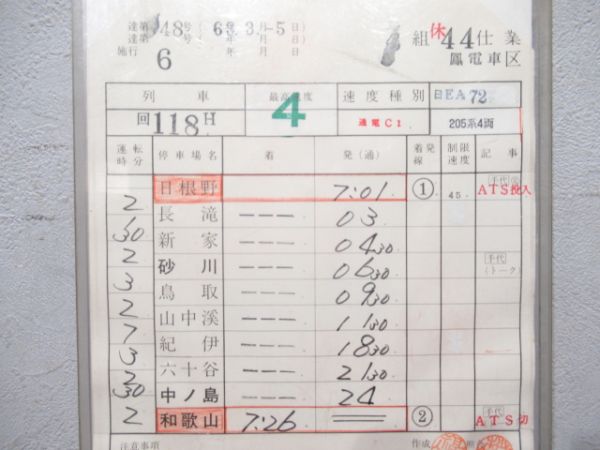 達第148号 (63年3月-5日)
達第 号 ( 年 月 日)
施行 6
組 休44仕業
鳳電車区
列車 最高速度 速度種別 日EA72
回118H 4 通電C1 205系4両
運転時分 停車場名 着 発(通) 着発線 制限速度 記事
日根野 7:01 ① 45 手代 ATS投入
2 長滝 --- 03
1 30 新家 --- 04 30
2 砂川 --- 06 30 手代 (トーク)
3 鳥取 --- 09 30
2 山中溪 --- 11 30
7 紀伊 --- 18 30
3 六十谷 --- 21 30
2 30 中ノ島 --- 24
2 和歌山 7:26 ② 手代 ATS切
注意事項 作成